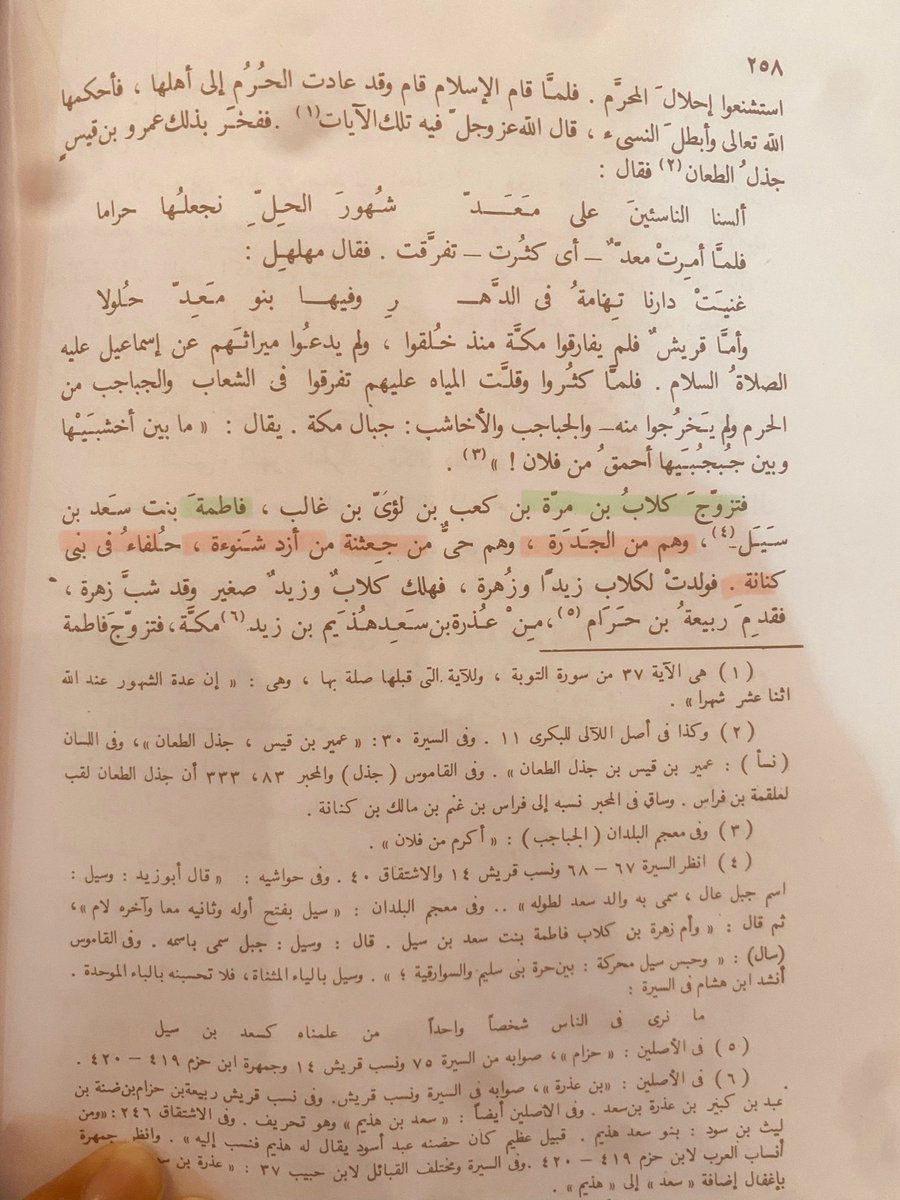 ٢٥٨
استشنعوا إحلالَ المحرَّم . فلمَّا قام الإسلام قام وقد عادت الحُرُم إلى أهلها ، فأحكمها
الله تعالى وأبطلَ النسىء ، قال الله عز وجلّ فيه تلك الآيات(١) . ففخَر بذلك عمرو بن قيسٍ
جذلُ الطعان(٢) فقال :
ألسنا الناسئينَ على مَعَدّ شُهورَ الحِلِّ نجعلُها حراما
فلمَّا أمِرتْ معدٌّ – أى كثُرت – تفرَّقت . فقال مهلهل :
غنيَتْ دارنا تِهامةُ فى الدَّهـ ـرِ وفيها بنو مَعَدِّ حُلولا
وأمَّا قريشٌ فلم يفارقوا مكَّة منذ خُلقوا ، ولم يدعُوا ميراثَهم عن إسماعيل عليه
الصلاةُ السلام . فلمَّا كثُروا وقلَّت المياه عليهم تفرقوا فى الشعاب والجباجب من
الحرم ولم يَخرُجوا منه– والجباجب والأخاشب : جبال مكة . يقال : « ما بين أخشبَيْها
وبين جُبجُبَيها أحمقُ من فلان ! »(٣) .
فتزوَّجَ كلابُ بن مرّة بن كعب بن لؤىّ بن غالب ، فاطمةَ بنت سَعد بن
سَيَل(٤) ، وهم من الجَدَرَة ، وهم حىٌّ من جِعثنة من أزد شَنوءة ، حُلفاءُ فى بنى
كنانة . فولدتْ لكلاب زيدًا وزُهرة ، فهلك كلابٌ وزيدٌ صغير وقد شبَّ زهرة ،
فقدِمَ ربيعةُ بن حَرَام(٥) ، مِنْ عُذرة بن سَعدِ هُذَيم بن زيد(٦) مكَّة ، فتزوّجَ فاطمة
(١) هى الآية ٣٧ من سورة التوبة ، وللآية التى قبلها صلة بها ، وهى : « إن عدة الشهور عند الله
اثنا عشر شهرا » .
(٢) وكذا فى أصل اللآلى للبكرى ١١ . وفى السيرة ٣٠ : « عمير بن قيس ، جذل الطعان » ، وفى اللسان
(نسأ) : عمير بن قيس بن جذل الطعان » . وفى القاموس (جذل) والمحبر ٨٣ ، ٣٣٣ أن جذل الطعان لقب
لعلقمة بن فراس . وساق فى المحبر نسبه إلى فراس بن غنم بن مالك بن كنانة .
(٣) وفى معجم البلدان (الجباجب) : « أكرم من فلان » .
(٤) انظر السيرة ٦٧ – ٦٨ ونسب قريش ١٤ والاشتقاق ٤٠ . وفى حواشيه : « قال أبو زيد : وسيل :
اسم جبل عال ، سمى به والد سعد لطوله » .. وفى معجم البلدان : « سيل بفتح أوله وثانيه معا وآخره لام » ،
ثم قال : « وأم زهرة بن كلاب فاطمة بنت سعد بن سيل . قال : وسيل : جبل سمى باسمه . وفى القاموس
(سال) : « وحبس سيل محركة : بين حرة بنى سليم والسوارقية ؛ » . وسيل بالياء المثناة ، فلا تحسبنه بالباء الموحدة .
أنشد ابن هشام فى السيرة :
ما نرى فى الناس شخصاً واحداً من علمناه كسعد بن سيل
(٥) فى الأصلين : « حزام » ، صوابه من السيرة ٧٥ ونسب قريش ١٤ وجمهرة ابن حزم ٤١٩ – ٤٢٠ .
(٦) فى الأصلين : « بن عذرة » ، صوابه فى السيرة ونسب قريش . وفى نسب قريش ربيعة بن حزام بن ضنة بن
عبد بن كبير بن عذرة بن سعد . وفى الأصلين أيضاً : « سعد بن هذيم » وهو تحريف . وفى الاشتقاق ٢٤٦ : « ومن
ليث بن سود : بنو سعد هذيم . قبيل عظيم كان حضنه عبد أسود يقال له هذيم فنسب إليه » . وانظر جمهرة
أنساب العرب لابن حزم ٤١٩ – ٤٢٠ . وفى السيرة ومختلف القبائل لابن حبيب ٣٧ : « عذرة بن
بإغفال إضافة « سعد » إلى « هذيم » .